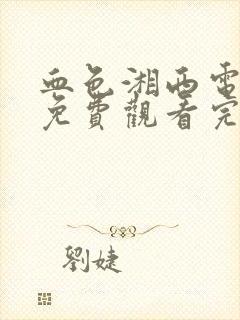 血色湘西電
免費觀看完
劉婕